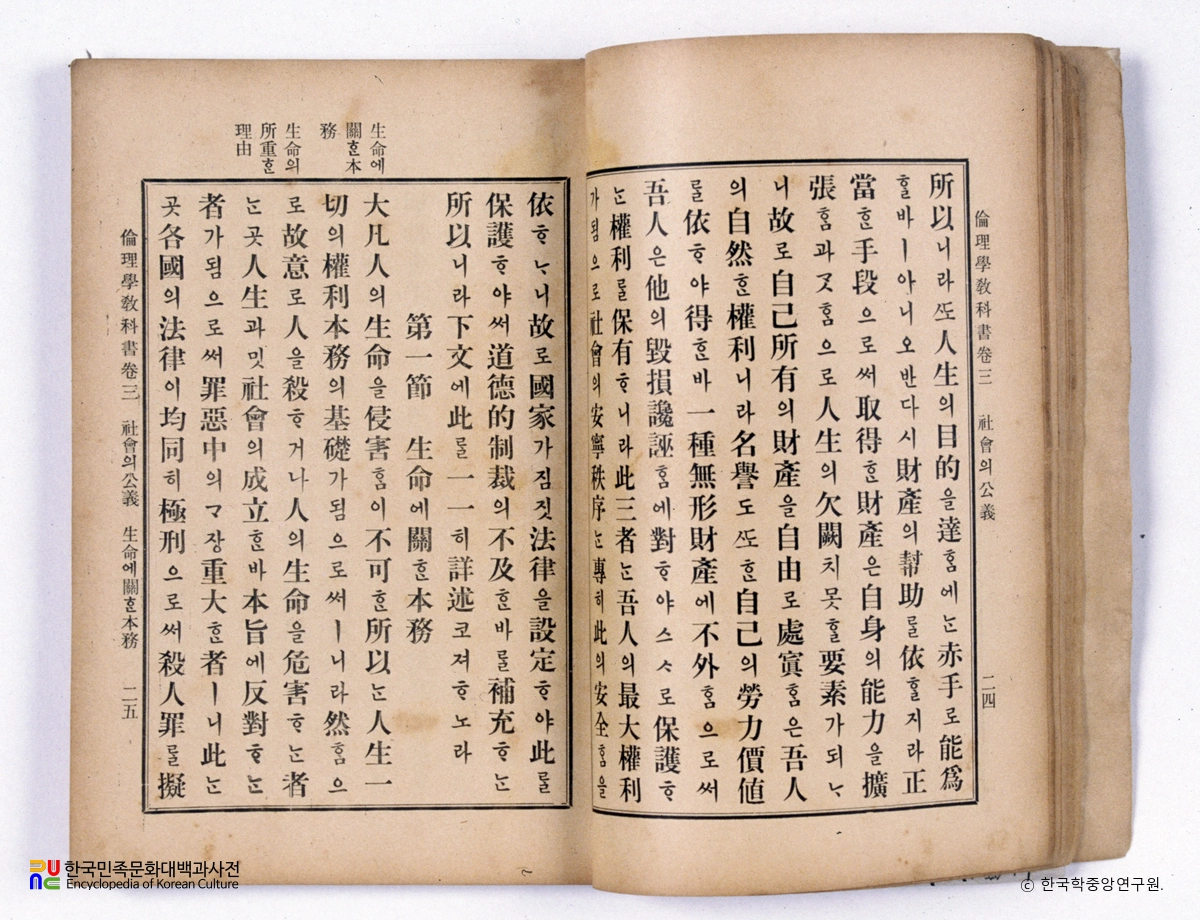 倫理學敎科書卷三 社會의公義 二四
所以니라ᄯᅩ人生의目的을達홈에ᄂᆞᆫ赤手로能爲
ᄒᆞᆯ바ㅣ아니오반다시財產의幇助ᄅᆞᆯ依ᄒᆞᆯ지라正
當ᄒᆞᆫ手段으로써取得ᄒᆞᆫ財產은自身의能力을擴
張홈과ᄀᆞᆺ홈으로人生의欠闕치못ᄒᆞᆯ要素가되ᄂᆞ
니故로自己所有의財產을自由로處寘홈은吾人
의自然ᄒᆞᆫ權利니라名譽도ᄯᅩᄒᆞᆫ自己의勞力價値
ᄅᆞᆯ依ᄒᆞ야得ᄒᆞᆫ바一種無形財產에不外홈으로써
吾人은他의毀損讒誣홈에對ᄒᆞ야스ᄉᆞ로保護ᄒᆞ
ᄂᆞᆫ權利ᄅᆞᆯ保有ᄒᆞ니라此三者ᄂᆞᆫ吾人의最大權利
가됨으로社會의安寧秩序ᄂᆞᆫ專히此의安全홈을
依ᄒᆞᄂᆞ니故로國家가짐짓法律을設定ᄒᆞ야此ᄅᆞᆯ
保護ᄒᆞ야써道德的制裁의不及ᄒᆞᆫ바ᄅᆞᆯ補充ᄒᆞᄂᆞᆫ
所以니라下文에此ᄅᆞᆯ一一히詳述코져ᄒᆞ노라
第一節 生命에關ᄒᆞᆫ本務
生命에
關ᄒᆞᆫ本
務
大凡人의生命을侵害홈이不可ᄒᆞᆫ所以ᄂᆞᆫ人生一
切의權利本務의基礎가됨으로써ㅣ니라然홈으
生命의
所重ᄒᆞᆫ
理由
로故意로人을殺ᄒᆞ거나人의生命을危害ᄒᆞᄂᆞᆫ者
ᄂᆞᆫ곳人生과밋社會의成立ᄒᆞᆫ바本旨에反對ᄒᆞᄂᆞᆫ
者가됨으로써罪惡中의ᄀᆞ장重大ᄒᆞᆫ者ㅣ니此ᄂᆞᆫ
곳各國의法律이均同히極刑으로써殺人罪ᄅᆞᆯ擬
倫理學敎科書卷三 社會의公義 生命에關ᄒᆞᆫ本務 二五
한국민족문화대백과사전
Encyclopedia of Korean Culture
© 한국학중앙연구원.